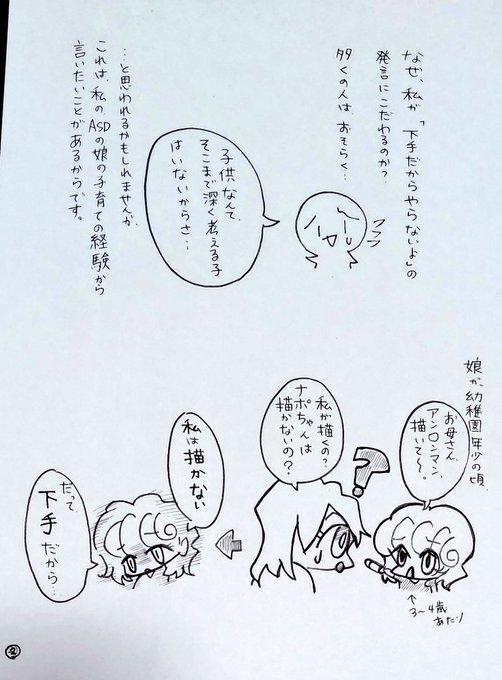 なぜ、私が「下手だからやらないよ」の
発言にこだわるのか?
多くの人は、おそらく…
子供なんて、
そこまで深く考える子
はいないからさ…
…と思われるかもしれませんが、
これは、私の、ASDの娘の子育ての経験から
言いたいことがあるからです。
娘が、幼稚園年少の頃
お母さん、
アンロンマン、
描いて〜。
↑
3〜4歳
あたり
私が描くの?
ナポちゃんは
描かないの?
?
私は描かない
だって、
下手だから…
②